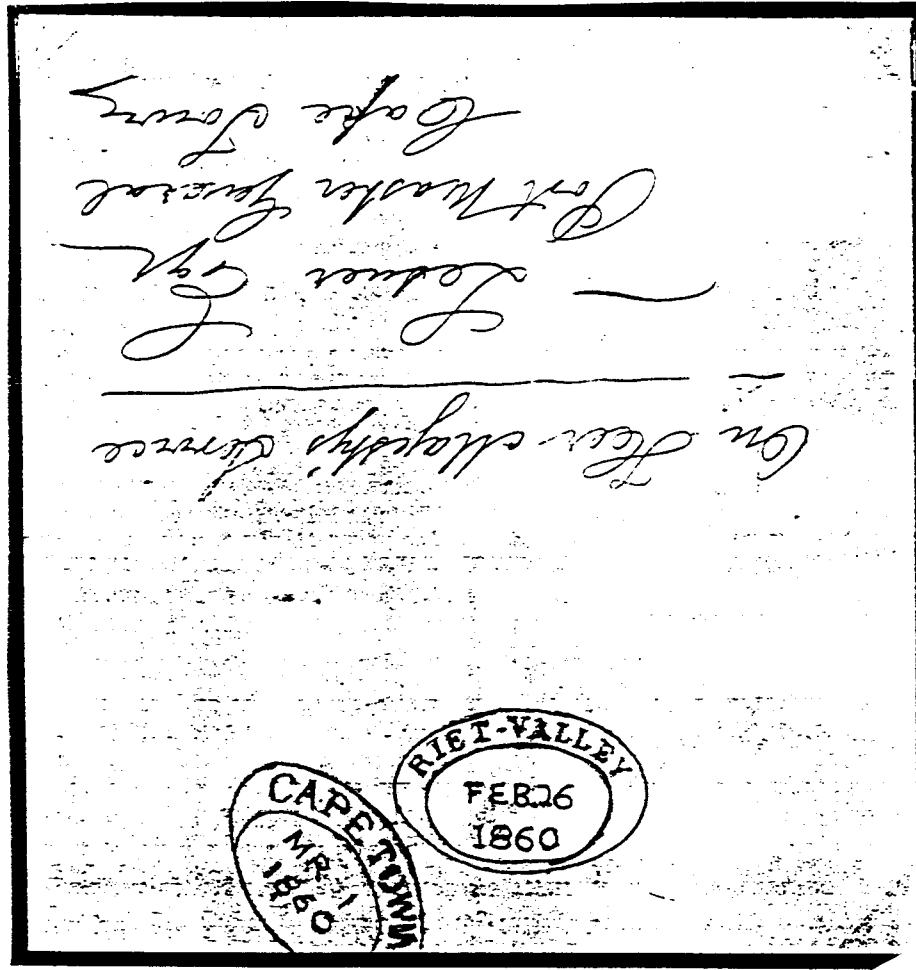 On Her Majesty's Service
Lesuer Esqr
Post Master General
Cape Town
RIET-VALLEY
FEB 26
1860
CAPETOWN
MR
1860